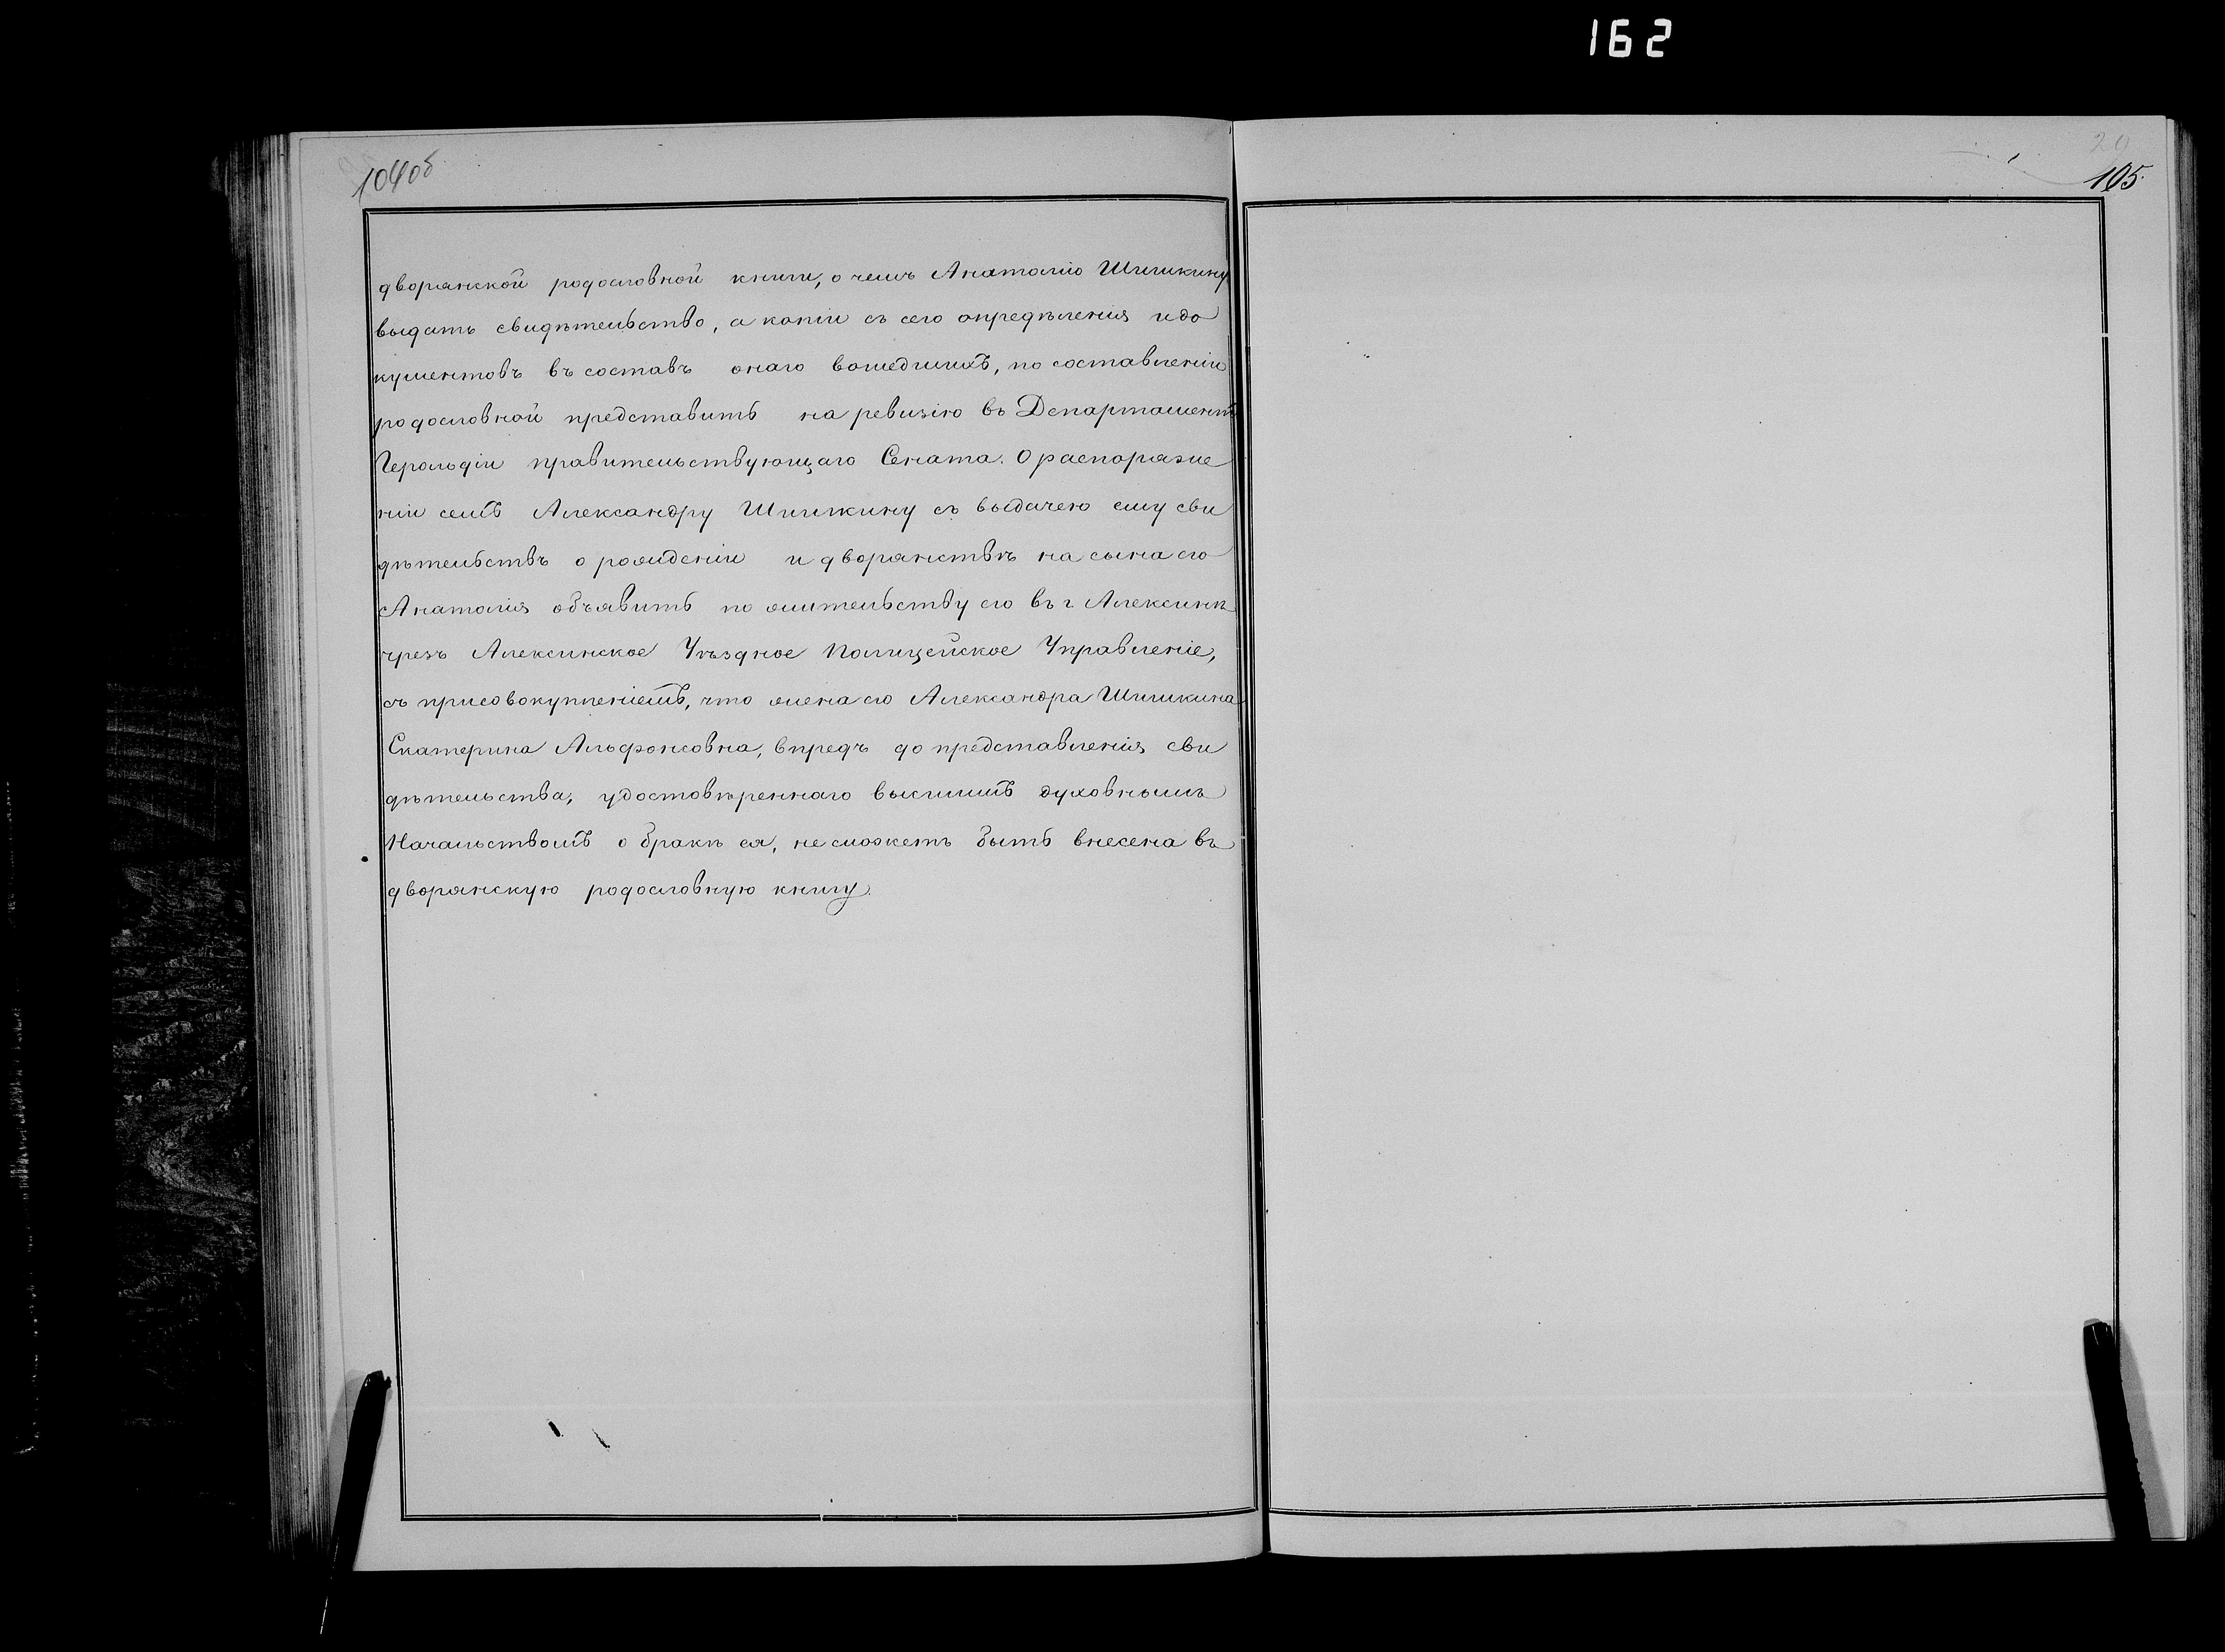 162
104об
20
105.
дворянской родословной книги, о чемъ Анатолію Шишкину
выдать свидѣтельство, а копіи съ сего опредѣленія и до
кументовъ въ составъ онаго вошедшихъ, по составленіи
родословной представить на ревизію въ Департаментъ
Герольдіи правительствующаго Сената. О распоряже
ніи семъ Александру Шишкину съ выдачею ему сви
дѣтельствъ о рожденіи и дворянствѣ на сына его
Анатолія объявить по жительству его въ г Алексинѣ
чрезъ Алексинское Уѣздное Полицейское Управленіе,
съ присовокупленіемъ, что жена его Александра Шишкина
Екатерина Альфонсовна, впредь до представленія сви
дѣтельства, удостовѣреннаго высшимъ духовнымъ
Начальствомъ о бракѣ ея, не сможетъ быть внесена въ
дворянскую родословную книгу.